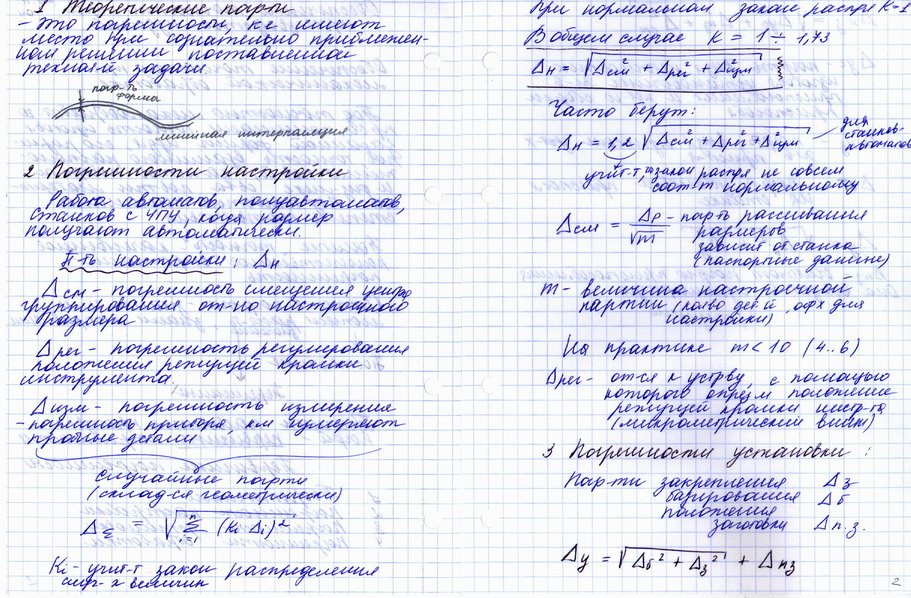 1 Теоретические погр-ти
- это погрешности, к-е имеют
место при сознательно приближен-
ном решении поставленной
технол-й задачи.
погр-ть
форма
линейная интерполяция
2 Погрешности настройки
Работа автоматов, полуавтоматов,
станков с ЧПУ, когда размер
получают автоматически.
П-ть настройки: Δн
Δсм - погрешность смещения центра
группирования от-но настроечного
размера
Δрег - погрешность регулирования
положения режущей кромки
инструмента
Δизм - погрешность измерения
- погрешность прибора, к-м измеряют
пробные детали
случайные погр-ти
(склад-ся геометрически)
Δε = √(Σ i=1 n (Ki Δi)²)
Ki - учит-т закон распределения
случ-х величин
При нормальном законе распре K=1
В общем случае K = 1 ÷ 1,73
Δн = √(Δсм² + Δрег² + Δизм²)
Часто берут:
Δн = 1,2 √(Δсм² + Δрег² + Δизм²)
для
станков-
автоматов
учит-т, что закон распр-я не совсем
соот-т нормальному
Δсм = Δр/√m - погр-ть рассеивания
размеров
зависит от станка
(паспортные данные)
m - величина настроечной
партии (кол-во дет-й для
настройки)
На практике m<10 (4..6)
Δрег - от-ся к устр-ву, с помощью
которого опред-м положение
режущей кромки инст-та
(микрометрический винт)
3 Погрешности установки:
Погр-ти закрепления Δз
базирования Δб
положения
заготовки Δп.з.
Δу = √(Δб² + Δз²) + Δпз
2